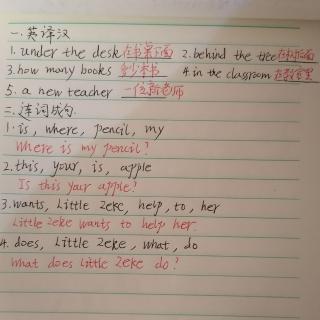 一.英译汉
1. under the desk 在书桌下面 2. behind the tree 在树后面
3. how many books 多少本书 4. in the classroom 在教室里
5. a new teacher 一位新老师
二.连词成句.
1. is, where, pencil, my
Where is my pencil?
2. this, your, is, apple
Is this your apple?
3. wants, Little Zeke, help, to, her
Little Zeke wants to help her.
4. does, Little Zeke, what, do
What does Little Zeke do?